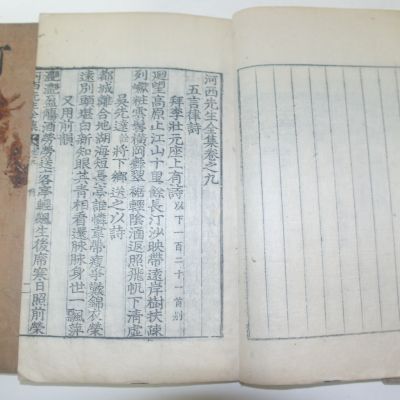 河西先生全集卷之九
五言律詩
拜李壯元座上有詩 以下一百二十一首別
望高原上江山十里餘長汀沙映帶遠岸樹扶疎
列巘粧雲鬢橫岡翠裾輕陰酒返照飛帆下清虛
吳先達 將下鄉送之以詩
都城離合地湖海短長亭誰憐韋帶瘦爭歎錦衣榮
遠別頭堪白新知眼共青相看還脉脉身世一飄萍
又用前韻
灑灑盈觴酒勞勞送客亭輕飈生後席寒日照前榮
河西先生全集